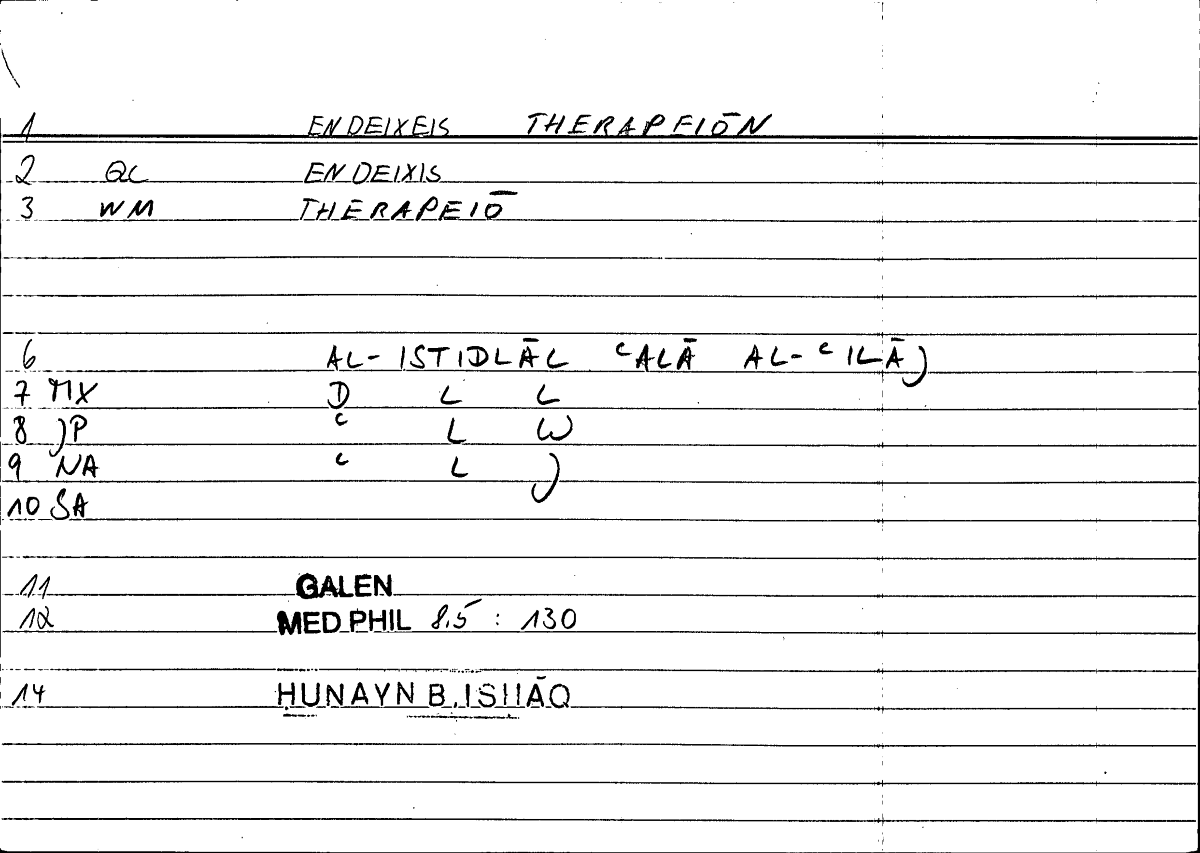 1 ENDEIXEIS THERAPEIŌN
2 QC ENDEIXIS
3 WM THERAPEIŌ
6 AL-ISTIDLĀL ʿALĀ AL-ʿILĀJ
7 MX D L L
8 JP ʿ L W
9 NA ʿ L J
10 SA
11 GALEN
12 MED PHIL 8.5 : 130
14 ḤUNAYN B. ISḤĀQ